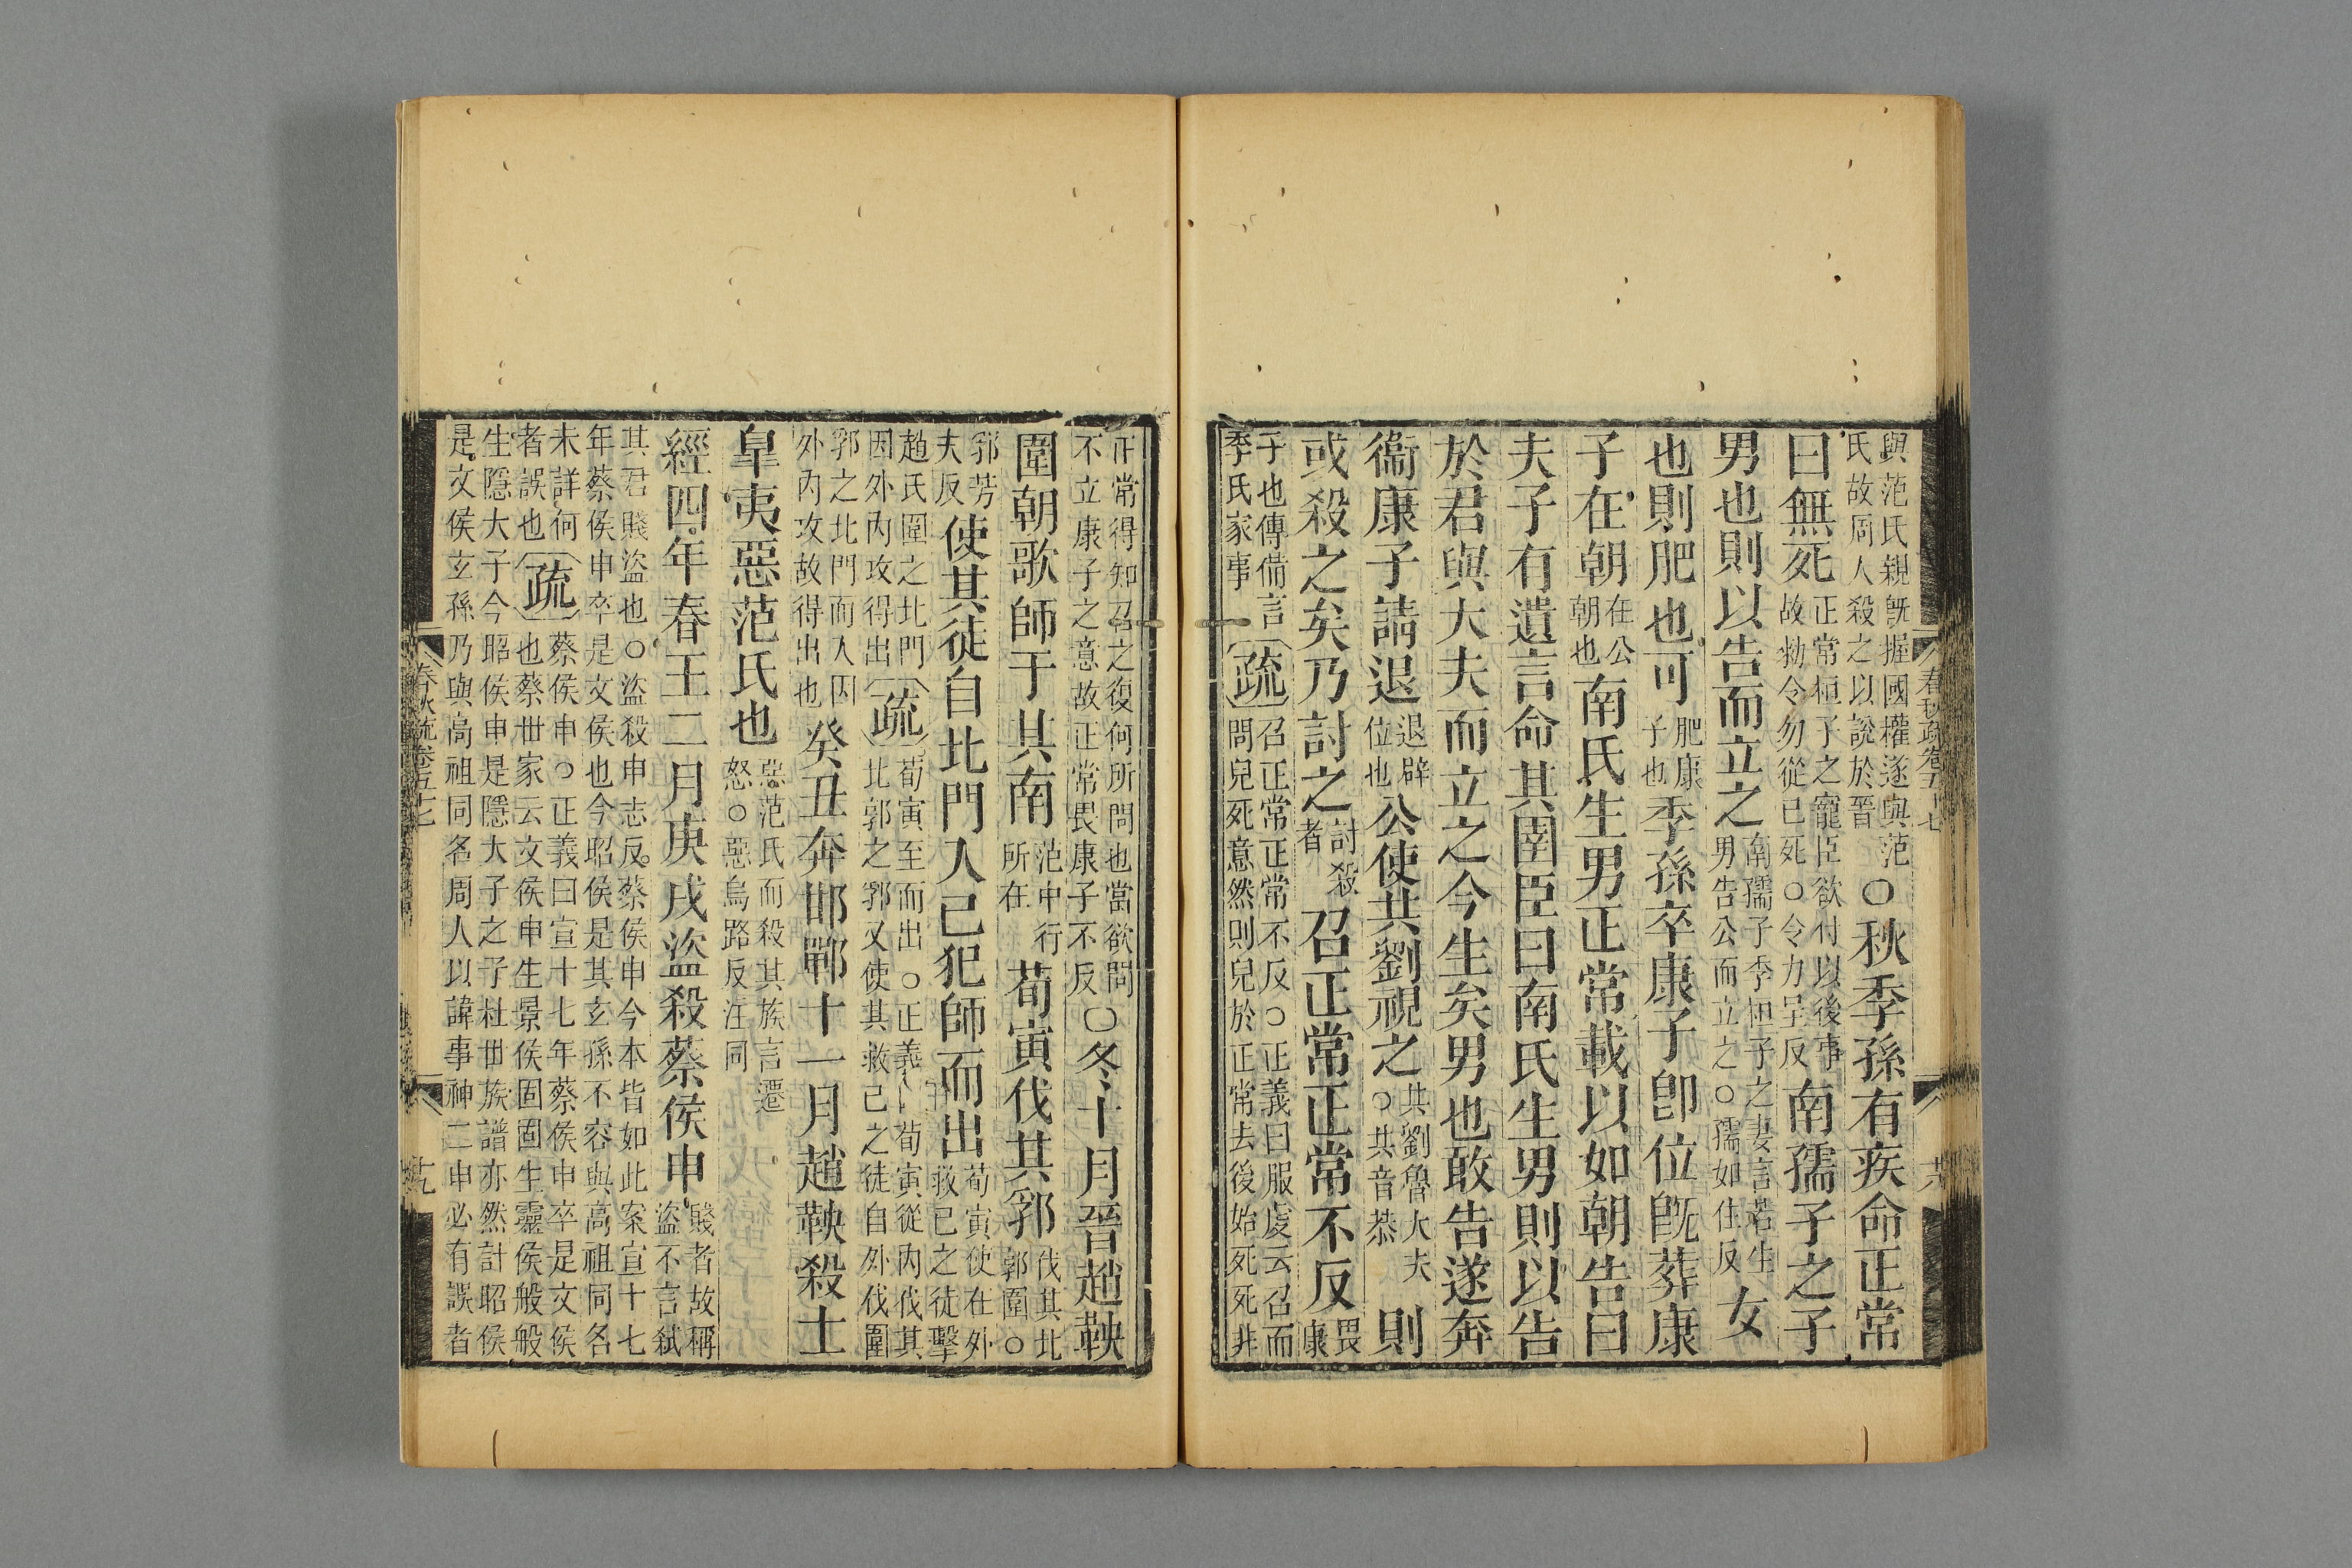 春秋疏卷五十七
與范氏親旣握國權遂與范氏故周人殺之以說於晉○秋季孫有疾命正常
曰無死正常桓子之寵臣欲付以後事故勑令勿從已死○令力呈反南孺子之子
男也則以告而立之南孺子季桓子之妻言若生男告公而立之○孺如住反女
也則肥也可肥康子也季孫卒康子卽位旣葬康
子在朝在公朝也南氏生男正常載以如朝告曰
夫子有遺言命其圉臣曰南氏生男則以告
於君與大夫而立之今生矣男也敢告遂奔
衞康子請退退辟位也公使共劉視之共劉魯大夫○共音恭則
或殺之矣乃討之討殺者召正常正常不反畏康
子也傳備言季氏家事疏召正常正常不反○正義曰服虔云召而問兒死意然則兒於正常去後始死死非
正常得知召之復何所問也當欲問不立康子之意故正常畏康子不反○冬十月晉趙鞅
圍朝歌師于其南范中行所在荀寅伐其郛伐其北郭圍○
郛芳夫反使其徒自北門入己犯師而出荀寅使在外救己之徒擊
趙氏圍之北門因外內攻得出疏荀寅至而出○正義荀寅從內伐其北郭之郛又使其救己之徒自外伐圍
郛之北門而入因外內攻故得出也癸丑奔邯鄲十一月趙鞅殺士
皐夷惡范氏也惡范氏而殺其族言遷怒○惡烏路反注同
經四年春王二月庚戌盜殺蔡侯申賤者故稱盜不言弒
其君賤盜也○盜殺申志反蔡侯申今本皆如此案宣十七年蔡侯申卒是文侯也今昭侯是其玄孫不容與高祖同名
未詳何者誤也疏蔡侯申○正義曰宣十七年蔡侯申卒是文侯也蔡世家云文侯申生景侯固固生靈侯般般
生隱大子今昭侯申是隱大子之子杜世族譜亦然計昭侯是文侯玄孫乃與高祖同名周人以諱事神二申必有誤者
春秋疏卷五十七
十九